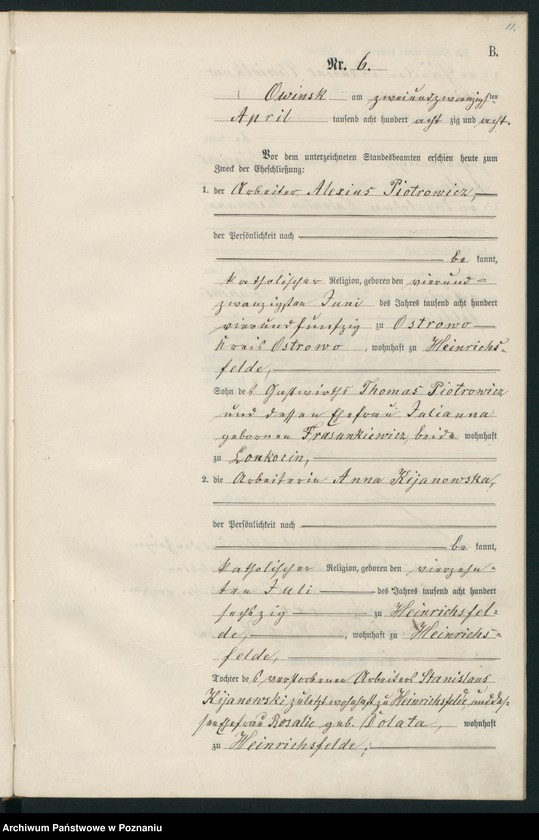 11.
B.
Nr. 6.
Owinsk am zweiundzwanzigsten
April tausend acht hundert acht zig und acht.
Vor dem unterzeichneten Standesbeamten erschien heute zum
Zweck der Eheschließung:
1. der Arbeiter Alexius Piotrowicz,
der Persönlichkeit nach
be kannt,
katholischer Religion, geboren den vierund-
zwanzigsten Juni des Jahres tausend acht hundert
vierundfünfzig zu Ostrowo
Kreis Ostrowo, wohnhaft zu Heinrichs-
felde,
Sohn des Gastwirths Thomas Piotrowicz
und dessen Ehefrau Julianna
geborenen Frasunkiewicz, beide wohnhaft
zu Lonkocin,
2. die Arbeiterin Anna Kijanowska,
der Persönlichkeit nach
be kannt,
katholischer Religion, geboren den vierzehn-
ten Juli des Jahres tausend acht hundert
sechszig zu Heinrichsfel-
de, wohnhaft zu Heinrichs-
felde,
Tochter des verstorbenen Arbeiters Stanislaus
Kijanowski zuletzt wohnhaft zu Heinrichsfelde und des-
sen Ehefrau Rosalie geb. Polata, wohnhaft
zu Heinrichsfelde;
Archiwum Państwowe w Poznaniu